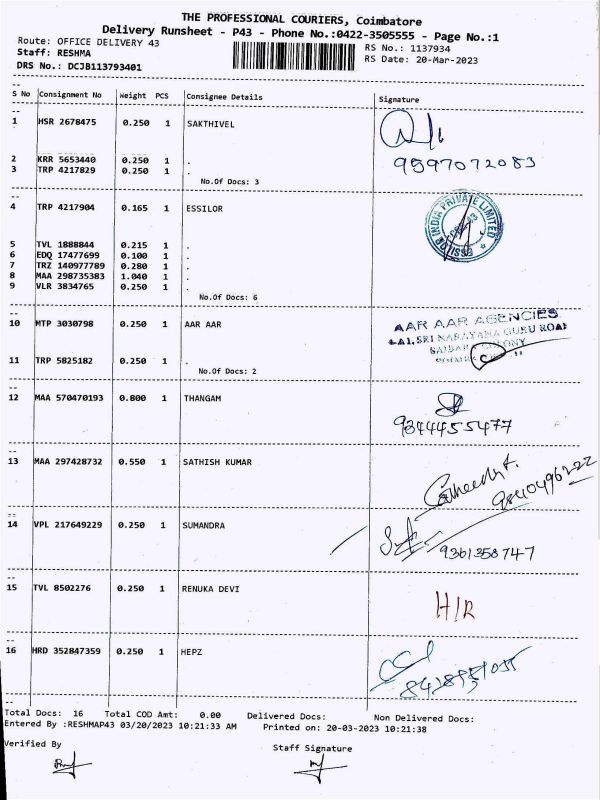 THE PROFESSIONAL COURIERS, Coimbatore
Delivery Runsheet - P43 - Phone No.:0422-3505555 - Page No.:1
Route: OFFICE DELIVERY 43
RS No.: 1137934
Staff: RESHMA
RS Date: 20-Mar-2023
DRS No.: DCJB113793401
--
S No Consignment No Weight PCS Consignee Details Signature
--
1 HSR 2678475 0.250 1 SAKTHIVEL
9597072083
2 KRR 5653440 0.250 1 .
3 TRP 4217829 0.250 1 .
No.Of Docs: 3
--
4 TRP 4217904 0.165 1 ESSILOR
ESSILOR INDIA PRIVATE LIMITED
5 TVL 1888844 0.215 1 .
6 EDQ 17477699 0.100 1 .
7 TRZ 140977789 0.280 1 .
8 MAA 298735383 1.040 1 .
9 VLR 3834765 0.250 1 .
No.Of Docs: 6
--
10 MTP 3030798 0.250 1 AAR AAR
AAR AAR AGENCIES
SRI NARAYANA GURU ROAD
COLONY
11 TRP 5825182 0.250 1 .
No.Of Docs: 2
--
12 MAA 570470193 0.800 1 THANGAM
9344455477
--
13 MAA 297428732 0.550 1 SATHISH KUMAR
9840496222
--
14 VPL 217649229 0.250 1 SUMANDRA
9361358747
--
15 TVL 8502276 0.250 1 RENUKA DEVI
H/R
--
16 HRD 352847359 0.250 1 HEPZ
8428951055
--
Total Docs: 16 Total COD Amt: 0.00 Delivered Docs: Non Delivered Docs:
Entered By :RESHMAP43 03/20/2023 10:21:33 AM Printed on: 20-03-2023 10:21:38
Verified By
Staff Signature